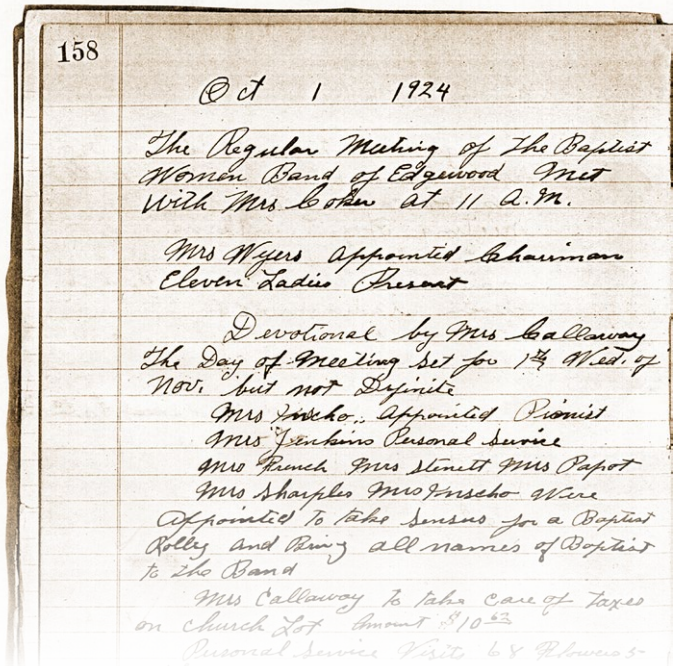 158
Oct 1 1924
The Regular Meeting of the Baptist
Women Band of Edgewood Met
With Mrs Coker at 11 A.M.
Mrs Wyers Appointed Chairman
Eleven Ladies Present
Devotional by Mrs Callaway
The Day of Meeting set for 1st Wed. of
Nov. but not Definite
Mrs Inscho, Appointed Pionist
Mrs Jenkins Personal Service
Mrs Mrs Stinett Mrs Papot
Mrs Sharples Mrs Inscho Were
Appointed to take sensus for a Baptist
and Bring all names of Baptist
to the Band
Mrs Callaway to take care of taxes
on church Lot Amount $10
Personal Service Visits 68 Flowers 5